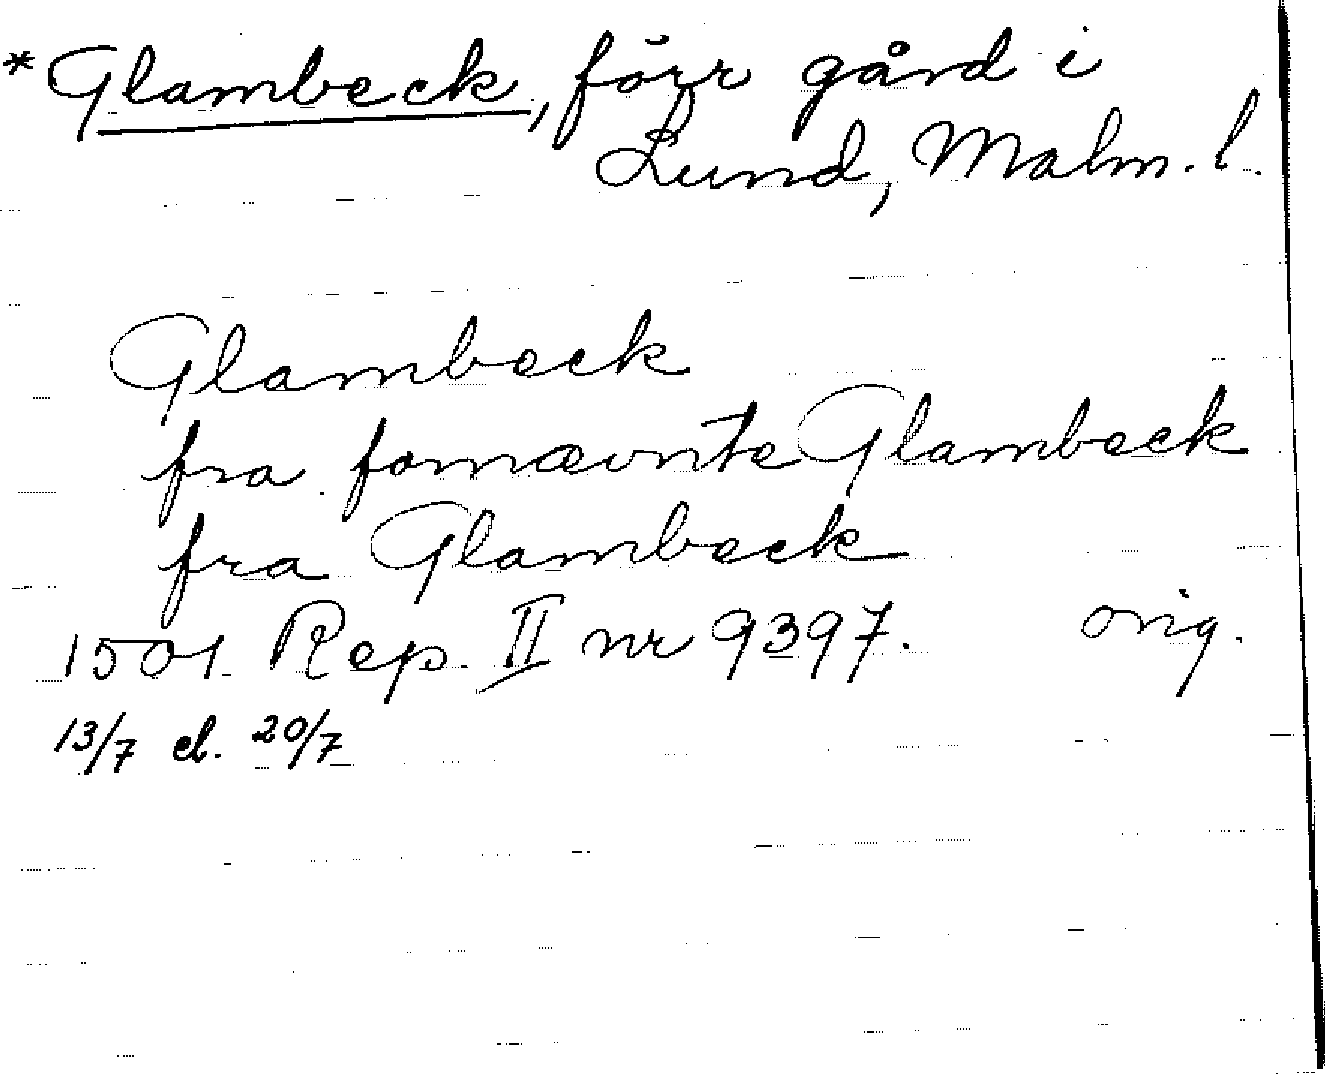 *Glambeck, förr gård i
Lund, Malm. l.
Glambeck
fra fornævnte Glambeck
fra Glambeck
1501 Rep. II nr 9397. orig.
13/7 el. 20/7